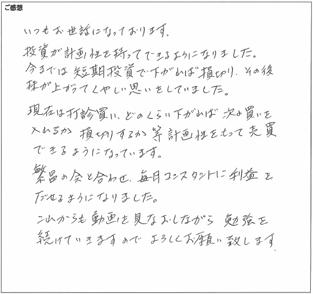 ご感想
いつもお世話になっております。
投資が計画性を持ってできるようになりました。
今までは短期投資で下がれば損切り、その後
株が上がってくやしい思いをしていました。
現在は打診買い、どのくらい下がれば次の買いを
入れるか 損切りするか等計画性をもって売買
できるようになっています。
繁昌の会と合わせ、毎月コンスタントに利益を
だせるようになりました。
これからも動画を見なおしながら 勉強を
続けていきますので よろしくお願い致します。